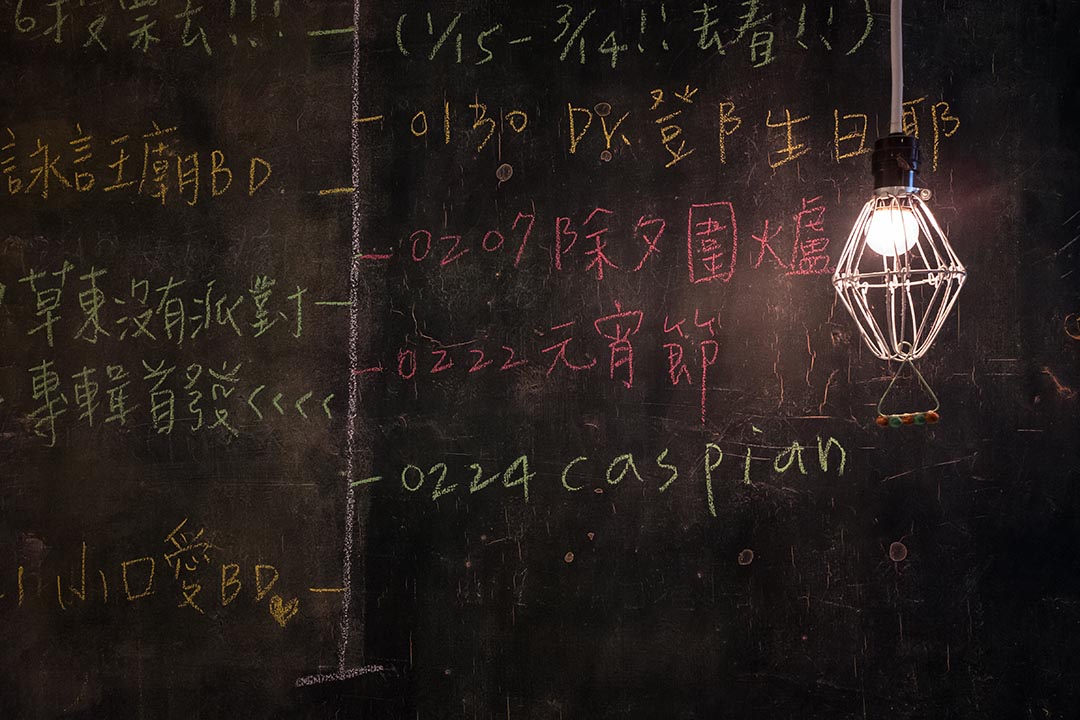 6投票去!!! —
詠詩王廟BD —
草東沒有派對 —
專輯首發<<<<
小口愛BD♥ —
(1/15-3/14!!去看!!)
-0130 DR.登B生日耶
-0207除夕圍火爐
-0222元宵節
-0224 caspian